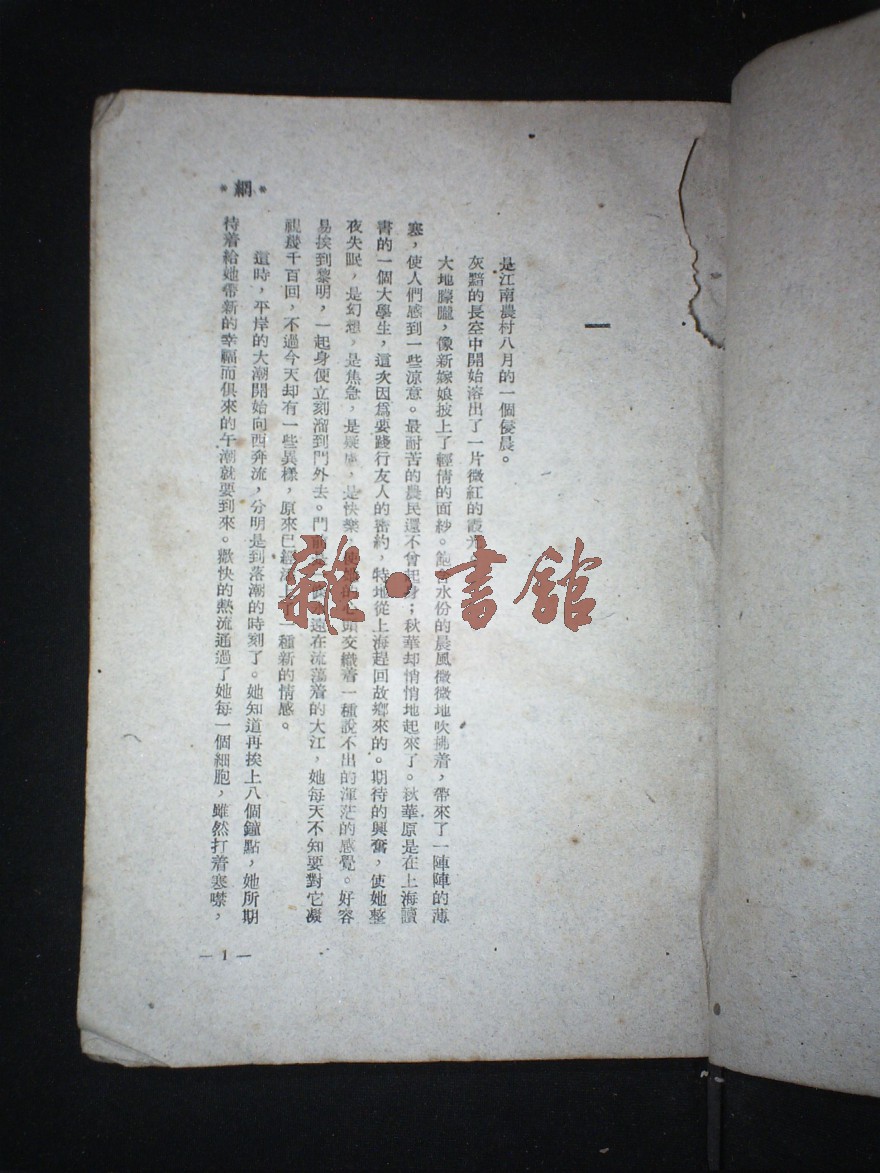 *網*
一
是江南農村八月的一個侵晨。
灰黯的長空中開始溶出了一片微紅的霞光
大地朦朧，像新嫁娘披上了輕倩的面紗。飽含水份的晨風微微地吹拂着，帶來了一陣陣的薄
寒，使人們感到一些涼意。最耐苦的農民還不會起身；秋華却悄悄地起來了。秋華原是在上海讀
書的一個大學生，這次因爲要踐行友人的密約，特地從上海趕回故鄉來的。期待的興奮，使她整
夜失眠，是幻想，是焦急，是疑慮，是快樂，的心頭交織着一種說不出的渾茫的感覺。好容
易挨到黎明，一起身便立刻溜到門外去。門前是遠在流蕩着的大江，她每天不知要對它凝
視幾千百回，不過今天却有一些異樣，原來已經一種新的情感。
這時，平岸的大潮開始向西奔流，分明是到落潮的時刻了。她知道再挨上八個鐘點，她所期
待着給她帶新的幸福而俱來的午潮就要到來。歡快的熱流通過了她每一個細胞，雖然打着寒噤，
— 1 —
雜·書館